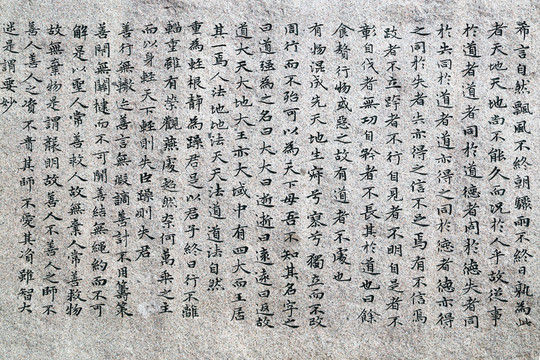 希言自然飄風不終朝驟雨不終日孰為此
者天地天地尚不能久而況於人乎故從事
於道者道者同於道德者同於德失者同
於失同於道者道亦得之同於德者德亦得
之同於失者失亦得之信不足焉有不信焉
跂者不立跨者不行自見者不明自是者不
彰自伐者無功自矜者不長其於道也曰餘
食贅行物或惡之故有道者不處也
有物混成先天地生寂兮寥兮獨立而不改
周行而不殆可以為天下母吾不知其名字之
曰道強為之名曰大大曰逝逝曰遠遠曰返故
道大天大地大王亦大域中有四大而王居
其一焉人法地地法天天法道道法自然
重為輕根靜為躁君是以君子終日行不離
輜重雖有榮觀燕處超然奈何萬乘之主
而以身輕天下輕則失臣躁則失君
善行無轍迹善言無瑕謫善計不用籌策
善閉無關楗而不可開善結無繩約而不可
解是以聖人常善救人故無棄人常善救物
故無棄物是謂襲明故善人不善人之師不
善人善人之資不貴其師不愛其資雖智大
迷是謂要妙